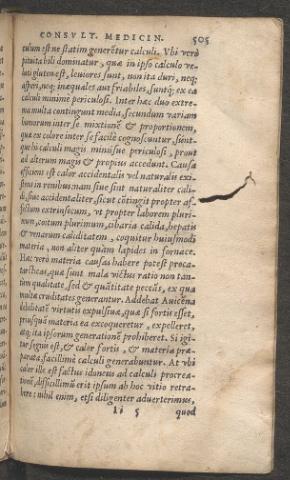 CONSVLT. MEDICIN. 505
culum est ne statim generẽtur calculi. Vbi verò
pituita bili dominatur, quæ in ipso calculo ve-
luti gluten est, leuiores sunt, non ita duri, neq;
asperi, neq; inæquales aut friabiles, suntq; ex ea
calculi minimè periculosi. Inter hæc duo extre-
ma multa contingunt media, secundum variam
humorum inter se mixtionẽ & proportionem,
quæ ex colore inter se facilè cognoscuntur, sunt-
que hi calculi magis minùsue periculosi, prout
ad alterum magis & propius accedunt. Causa
efficiens est calor accidentalis vel naturalis exi-
stens in renibus: nam siue sint naturaliter cali-
di, siue accidentaliter, sicut cõtingit propter af-
flictum extrinsecum, vt propter laborem pluri-
mum, coitum plurimum, cibaria calida, hepatis
& venarum caliditatem, coquitur huiusmodi
materia, non aliter quàm lapides in fornace.
Hæc verò materia causas habere potest proca-
tarcticas, quæ sunt mala victus ratio non tan-
tùm qualitate, sed & quãtitate peccãs, ex qua
multæ cruditates generantur. Addebat Auicẽna
debilitatẽ virtutis expulsiuæ, quæ si fortis esset,
priusquã materia ea excoqueretur, expelleret,
atq; ita ipsorum generationẽ prohiberet. Si igi-
tur segnis est, & calor fortis, & materia præ-
parata, facillimè calculi generabuntur. At vbi
calor ille est factus idoneus ad calculi procrea-
tionẽ, difficillimũ erit ipsum ab hoc vitio retra-
here: nihil enim, etsi diligenter aduerterimus,
Ii 5 quod